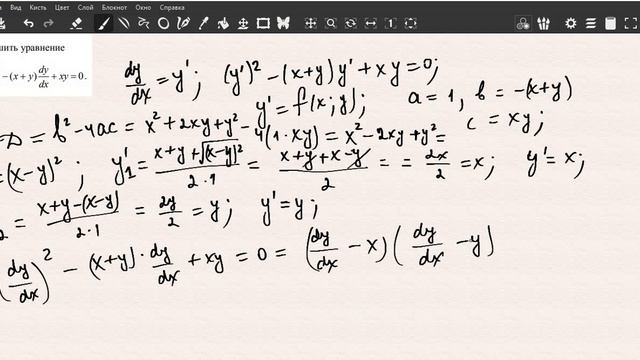 Вид Кисть Цвет Слой Блокнот Окно Справка
шить уравнение
-(x+y)dy/dx + xy = 0.
dy/dx = y'; (y')² - (x+y)y' + xy = 0;
y' = f(x; y); a = 1, b = -(x+y)
D = b² - 4ac = x² + 2xy + y² - 4(1·xy) = x² - 2xy + y² = c = xy;
= (x-y)²; y'₁ = (x+y+√(x-y)²)/(2·1) = (x+y+x-y)/2 = = 2x/2 = x; y' = x;
₂ = (x+y-(x-y))/(2·1) = 2y/2 = y; y' = y;
(dy/dx)² - (x+y)·dy/dx + xy = 0 = (dy/dx - x)(dy/dx - y)